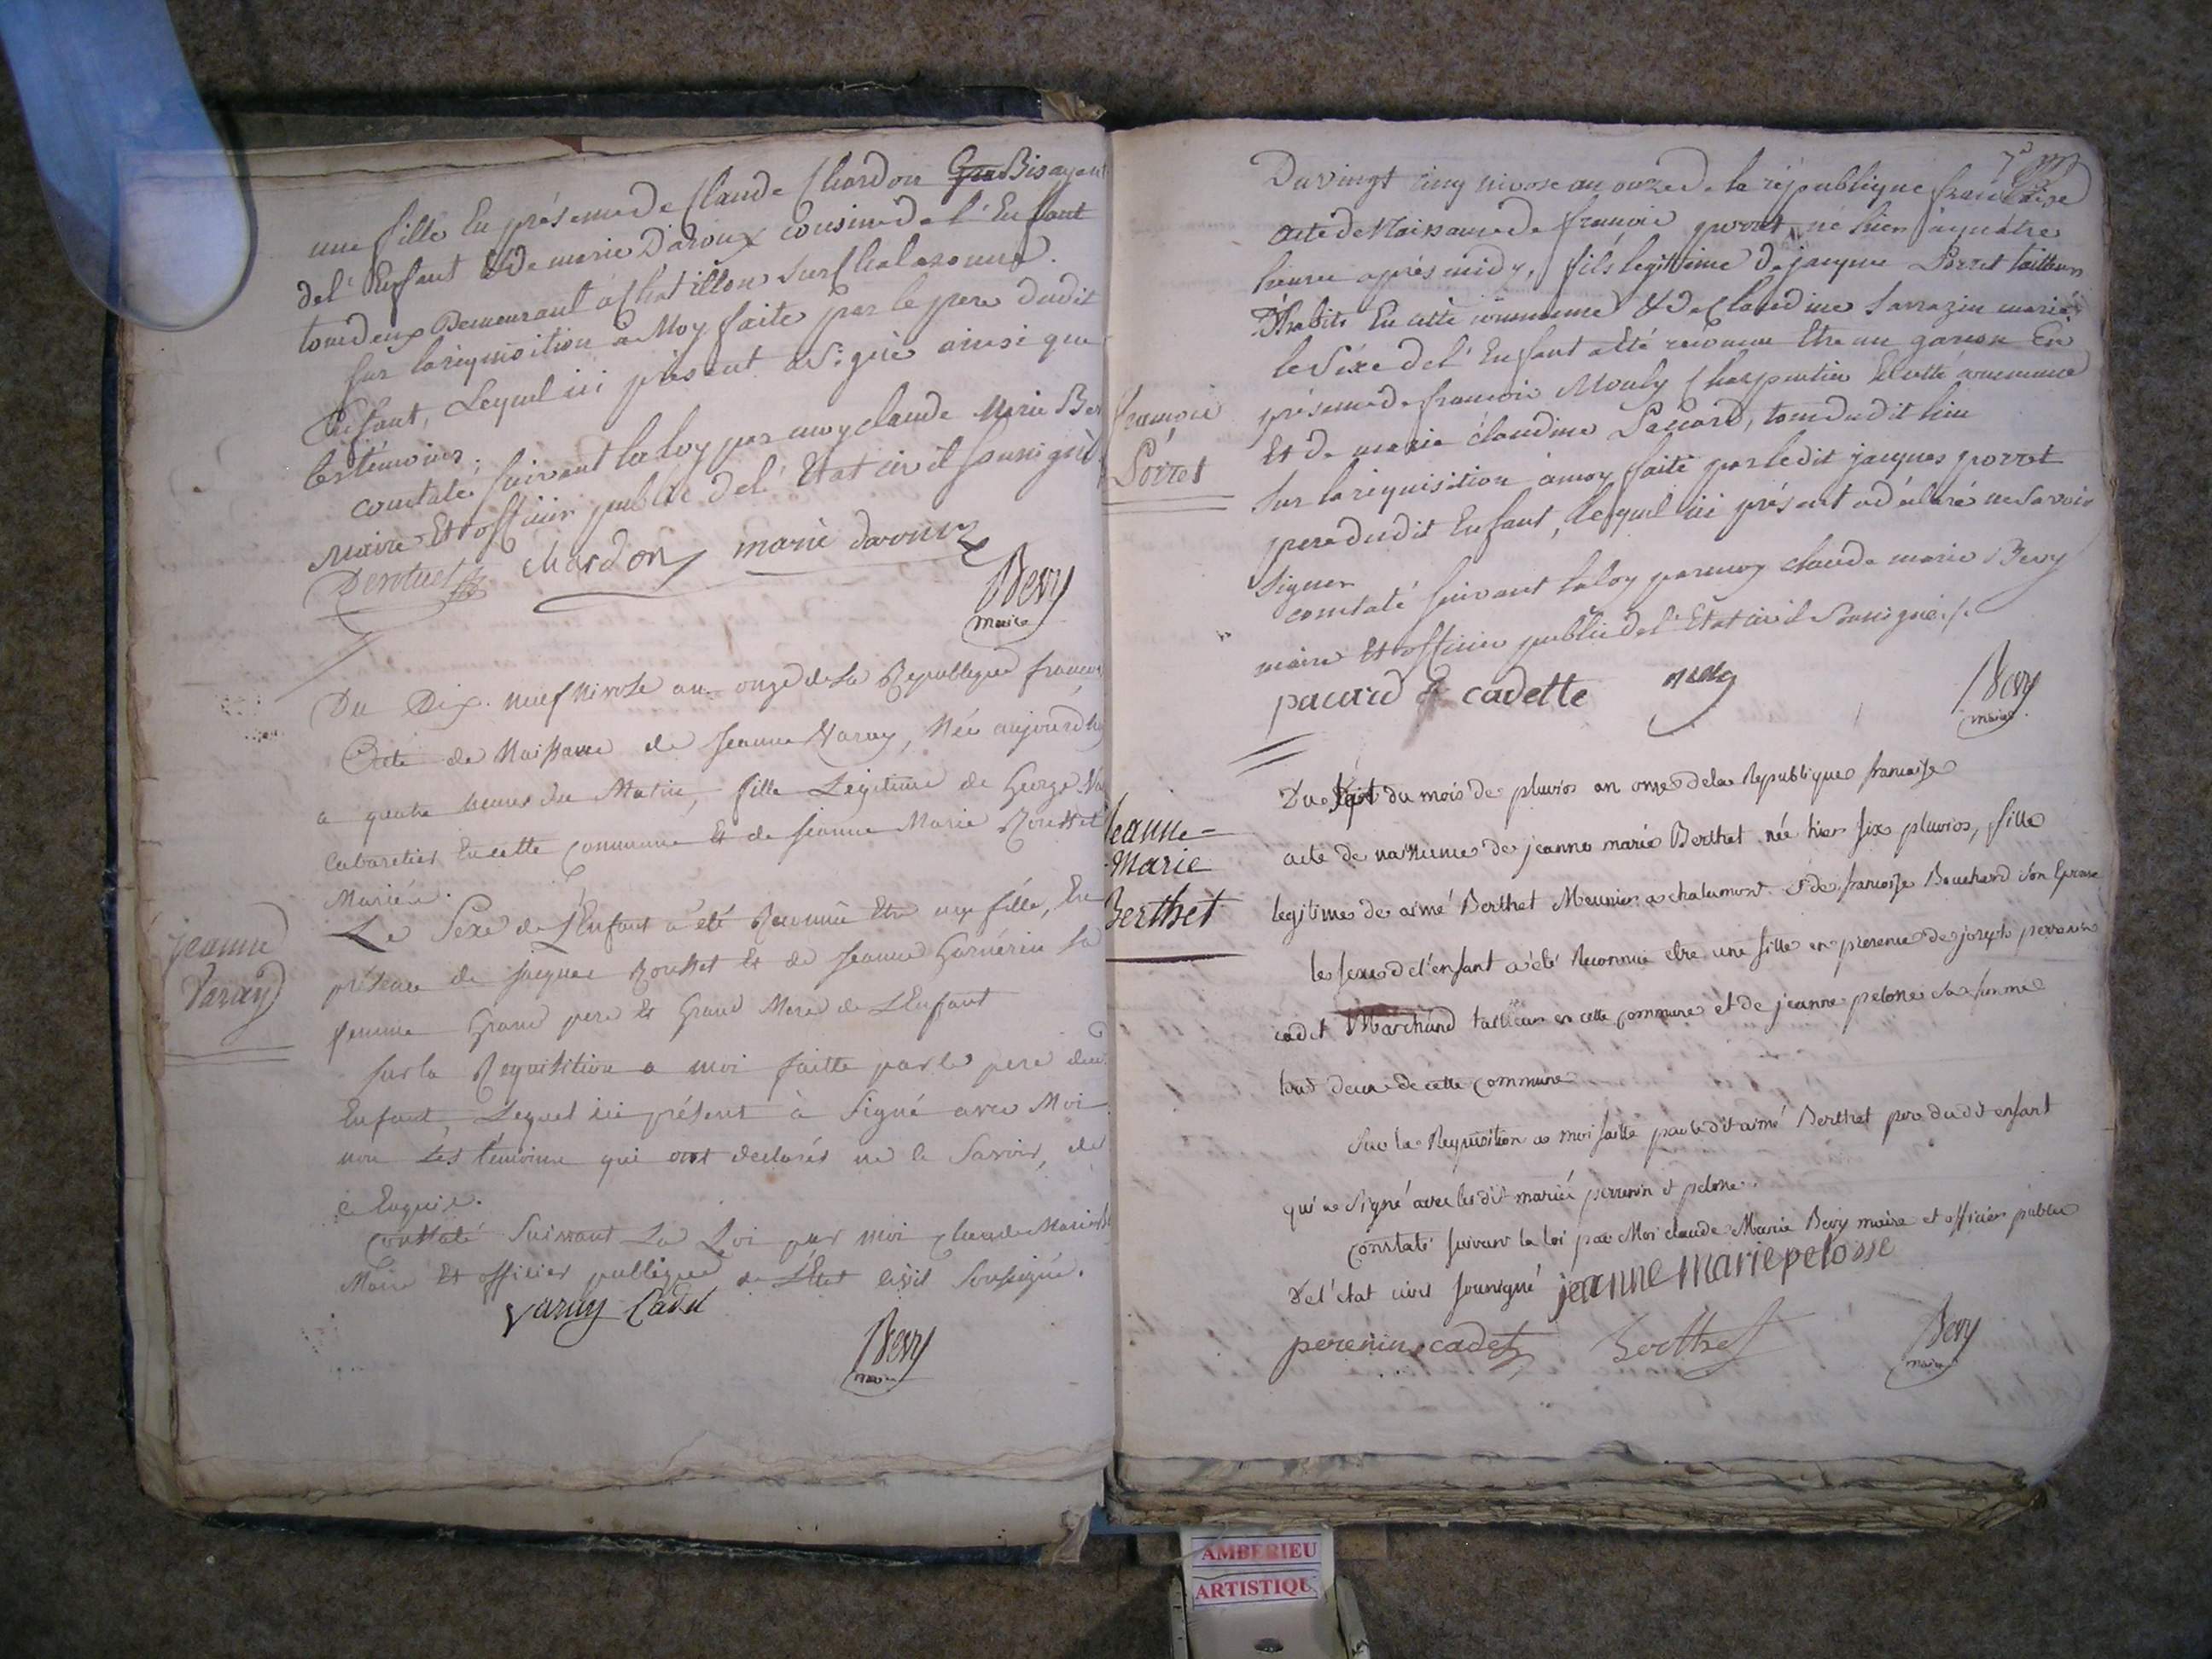 une fille En présence de Claude Chardon Bisayeul
de l'Enfant & de marie Daroux cousine de l'Enfant
tous deux Demeurant à Chatillon sur Chalaronne.
sur la réquisition à Moy faite par le pere dudit
Enfant, Lequel ici présent a Signé ainsi que
les témoins.
constaté suivant la loy par moy claude Marie Bev
Maire Et officier public de l'Etat civil soussigné
chardon marie daroux
Bevy
maire
Du Dix neuf Nivose an onze de la Republique francois
Acte de Naissance de Jeanne Varay, Née aujourd'hu
a quatre heures du Matin, fille Légitime de George Va
Cabaretier En cette Commune Et de Jeanne Marie Rousset
Mariés.
Le Sexe de L'Enfant a été Reconnu Etre une fille, En
présence de Jacques Rousset Et de Jeanne Garnérin sa
femme Grand pere Et Grand Mere de L'Enfant
sur la Requisition a moi faitte par le pere dud
Enfant, Lequel ici présent à Signé avec Moi
non Les témoins qui ont declarés ne le Savoir, de
ce Enquis.
Constaté Suivant La Loi par moi Claude Marie B
Maire Et officier publique de L'Etat civil Soussigné.
Jeanne
Varay
varay Cadet
Bevy
maire
Du vingt cinq nivose an onze de la république francaise
acte de Naissance de francois porret, né hier à quatre
heures après midy, fils légitime de jacques Porret tailleur
D'habits En cette commune & de Claudine Sarrazin mariés
le Séxe de l'Enfant a été reconnu Etre un garcon En
présence de francois Mouly Charpentier En cette commune
Et de marie claudine Pacard, tous dudit lieu
Sur la réquisition à moy faite par ledit jacques porret
pere dudit Enfant, lequel ici présent a déclaré ne savoir
Signer
constaté suivant la loy par moy claude marie Bevy
maire Et officier public de l'Etat civil Soussigné ./.
francois
Porret
pacard cadette
Bevy
maire
Du Sept du mois de pluvios an onse de la Republique francaise
acte de naissance de jeanne marie Berthet née hier six pluvios, fille
legitime de aimé Berthet Meunier a chalamont et de francoise Bouchard son Epouse
le sexe de l'enfant a été Reconnue etre une fille en presence de joseph perrenin
cadet Marchand tailleur en cette commune et de jeanne pelosse sa femme
tous deux de cette commune
Sur la Requisition a moi faitte par le dit aimé Berthet pere du dit enfant
qui a signé avec les dit mariés perrenin et pelosse.
constaté suivant la loi par Moi claude Marie Bevy maire et officier public
De l'etat civil soussigné
Jeanne-
Marie
Berthet
jeanne marie pelosse
perenin cadet
Berthet
Bevy
maire
AMBERIEU
ARTISTIQU